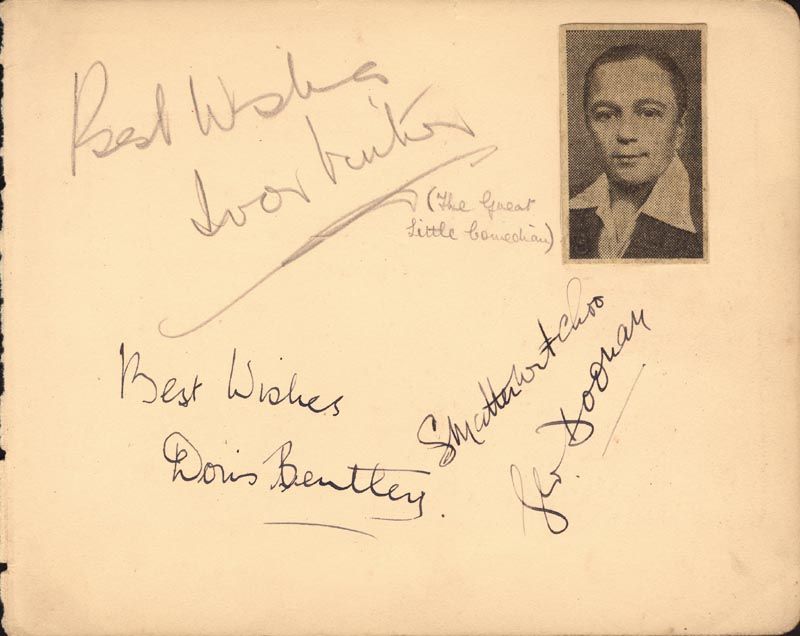 Best Wishes
Ivor Vintor
(The Great
Little Comedian)
Best Wishes
Doris Bentley.
SMatterwitchoo
Geo. Doonan